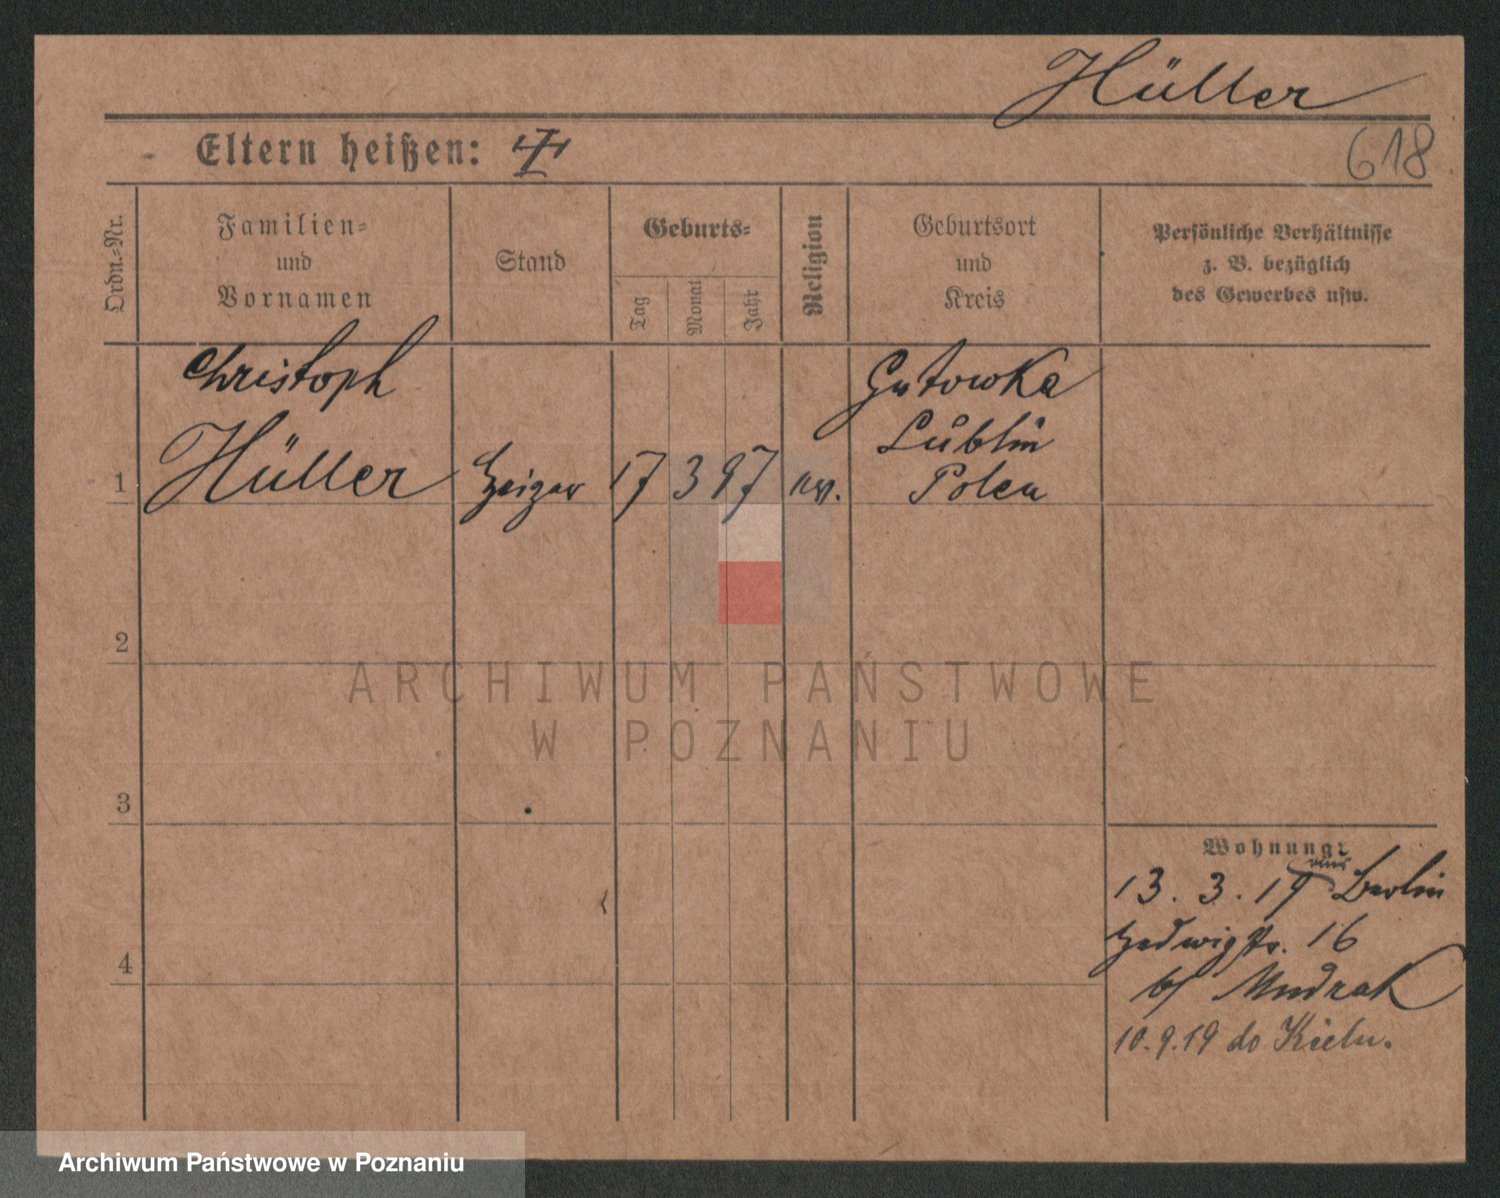 Hüller
618
Eltern heißen:
Ordn.-Nr.
Familien-
und
Vornamen
Stand
Geburts-
Tag
Monat
Jahr
Religion
Geburtsort
und
Kreis
Persönliche Verhältnisse
z. B. bezüglich
des Gewerbes usw.
Christoph
Hüller
1
Heizer
17
3
97
ev.
Gutowka
Lublin
Polen
2
3
4
Wohnung:
13. 3. 19 aus Berlin
Hedwigstr. 16
b/ Mudrak
10.9.19 do
ARCHIWUM PAŃSTWOWE
W POZNANIU
Archiwum Państwowe w Poznaniu